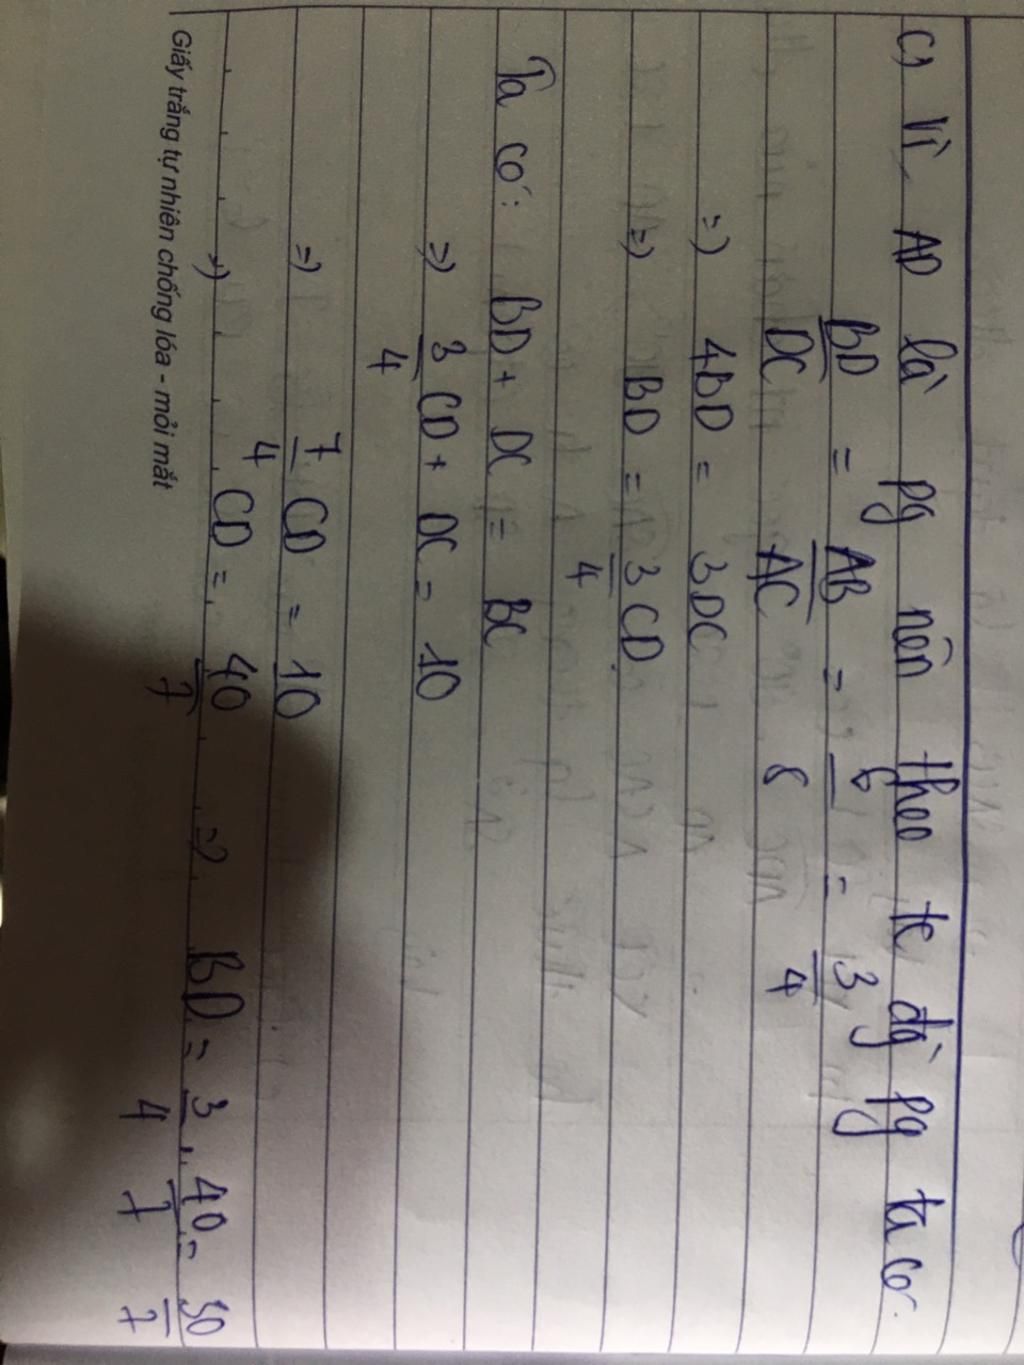 c) Vì AD là pg nên theo tc đg` pg ta có:
BD/DC = AB/AC = 6/8 = 3/4
=) 4BD = 3DC
=) BD = 3/4 CD
Ta có: BD + DC = BC
=) 3/4 CD + DC = 10
=) 7/4 CD = 10
=) CD = 40/7 =) BD = 3/4 . 40/7 = 30/7
Giấy trắng tự nhiên chống lóa - mỏi mắt